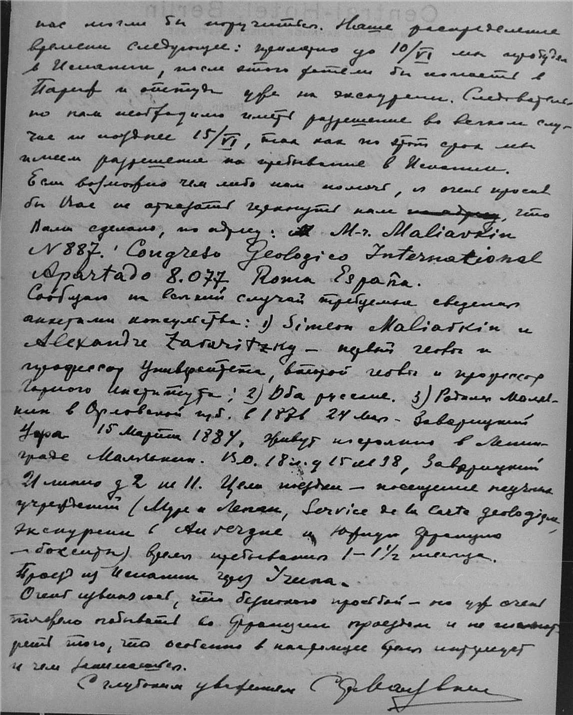 нас могли бы поручиться. Наше распределение
времени следующее: примерно до 10/VI мы пробудем
в Испании, после этого хотели бы попасть в
Париж и оттуда уже на экскурсии. Следователь-
но нам необходимо иметь разрешение во всяком слу-
чае не позднее 15/VI, так как по этот срок мы
имеем разрешение на пребывание в Испании.
Если возможно чем либо нам помочь, я очень просил
бы Вас не отказать черкнуть нам, что
Вами сделано, по адресу: Mr. Maliavkin
N 887. Congreso Geologico International
Apartado 8.077. España.
Сообщаю на всякий случай требуемые сведения
анкетами консульства: 1) Simeon Maliavkin и
Alexandre Zavaritzky – первый геолог и
профессор Университета, второй геолог и профессор
Горного Института; 2) Оба русские. 3) Родился Маляв-
кин в Орловской губ. в 1876 24 Мая – Заварицкий
Уфа 15 Марта 1884, живут постоянно в Ленин-
граде Малявкин. В.О. 18 л. д 15 38, Заварицкий
21 линия д 2 кв 11. Цель поездки – посещение научных
учреждений (Service de la Carte geologique,
экскурсии в Auvergne и Южную Францию
– бокситы) время пребывания 1 – 1½ месяца.
Проезд из Испании через
Очень извиняюсь, что беспокою просьбой – но уж очень
тяжело побывать во Франции проездом и не посмот-
реть того, что особенно в настоящее время интересует
и чем занимаешься.
С глубоким уважением